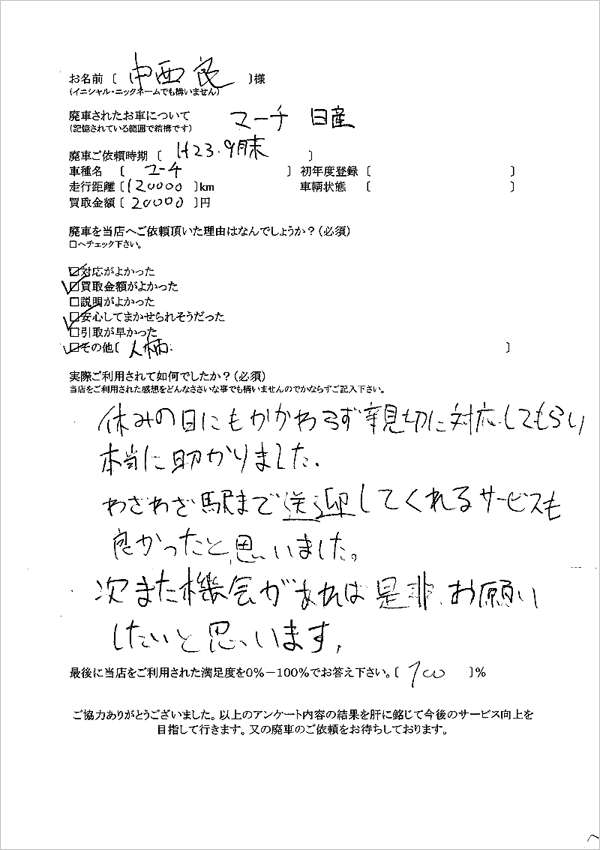 お名前〔 中西 良 〕様
(イニシャル・ニックネームでも構いません)
廃車されたお車について マーチ 日産
(記憶されている範囲で結構です)
廃車ご依頼時期〔 H23.9月末 〕
車種名〔 マーチ 〕初年度登録〔 〕
走行距離〔120000 〕km 車輌状態〔 〕
買取金額〔 20000 〕円
廃車を当店へご依頼頂いた理由はなんでしょうか?(必須)
□へチェック下さい。
☑対応がよかった
☑買取金額がよかった
□説明がよかった
☑安心してまかせられそうだった
□引取が早かった
☑その他〔 人柄. 〕
実際ご利用されて如何でしたか?(必須)
当店をご利用された感想をどんなささいな事でも構いませんのでかならずご記入下さい。
休みの日にもかかわらず親切に対応してもらい
本当に助かりました.
わざわざ駅まで送迎してくれるサービスも
良かったと思いました。
次また機会があれば是非お願い
したいと思います,
最後に当店をご利用された満足度を0%-100%でお答え下さい。〔 100 〕%
ご協力ありがとうございました。以上のアンケート内容の結果を肝に銘じて今後のサービス向上を
目指して行きます。又の廃車のご依頼をお待ちしております。